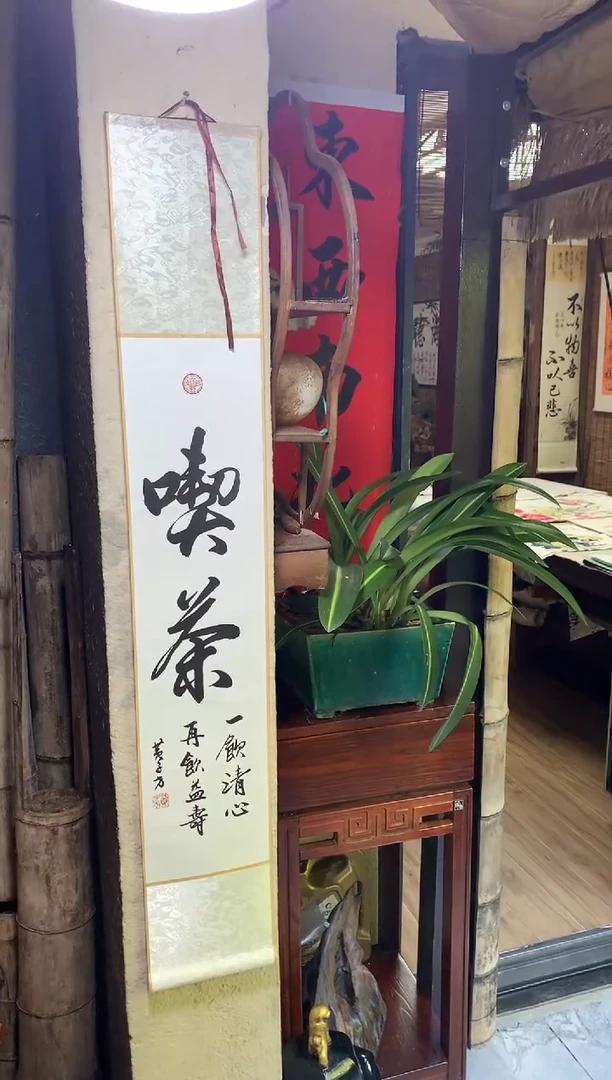 喫茶
一飲清心
再飲益壽
東西南
不以物喜
不以己悲